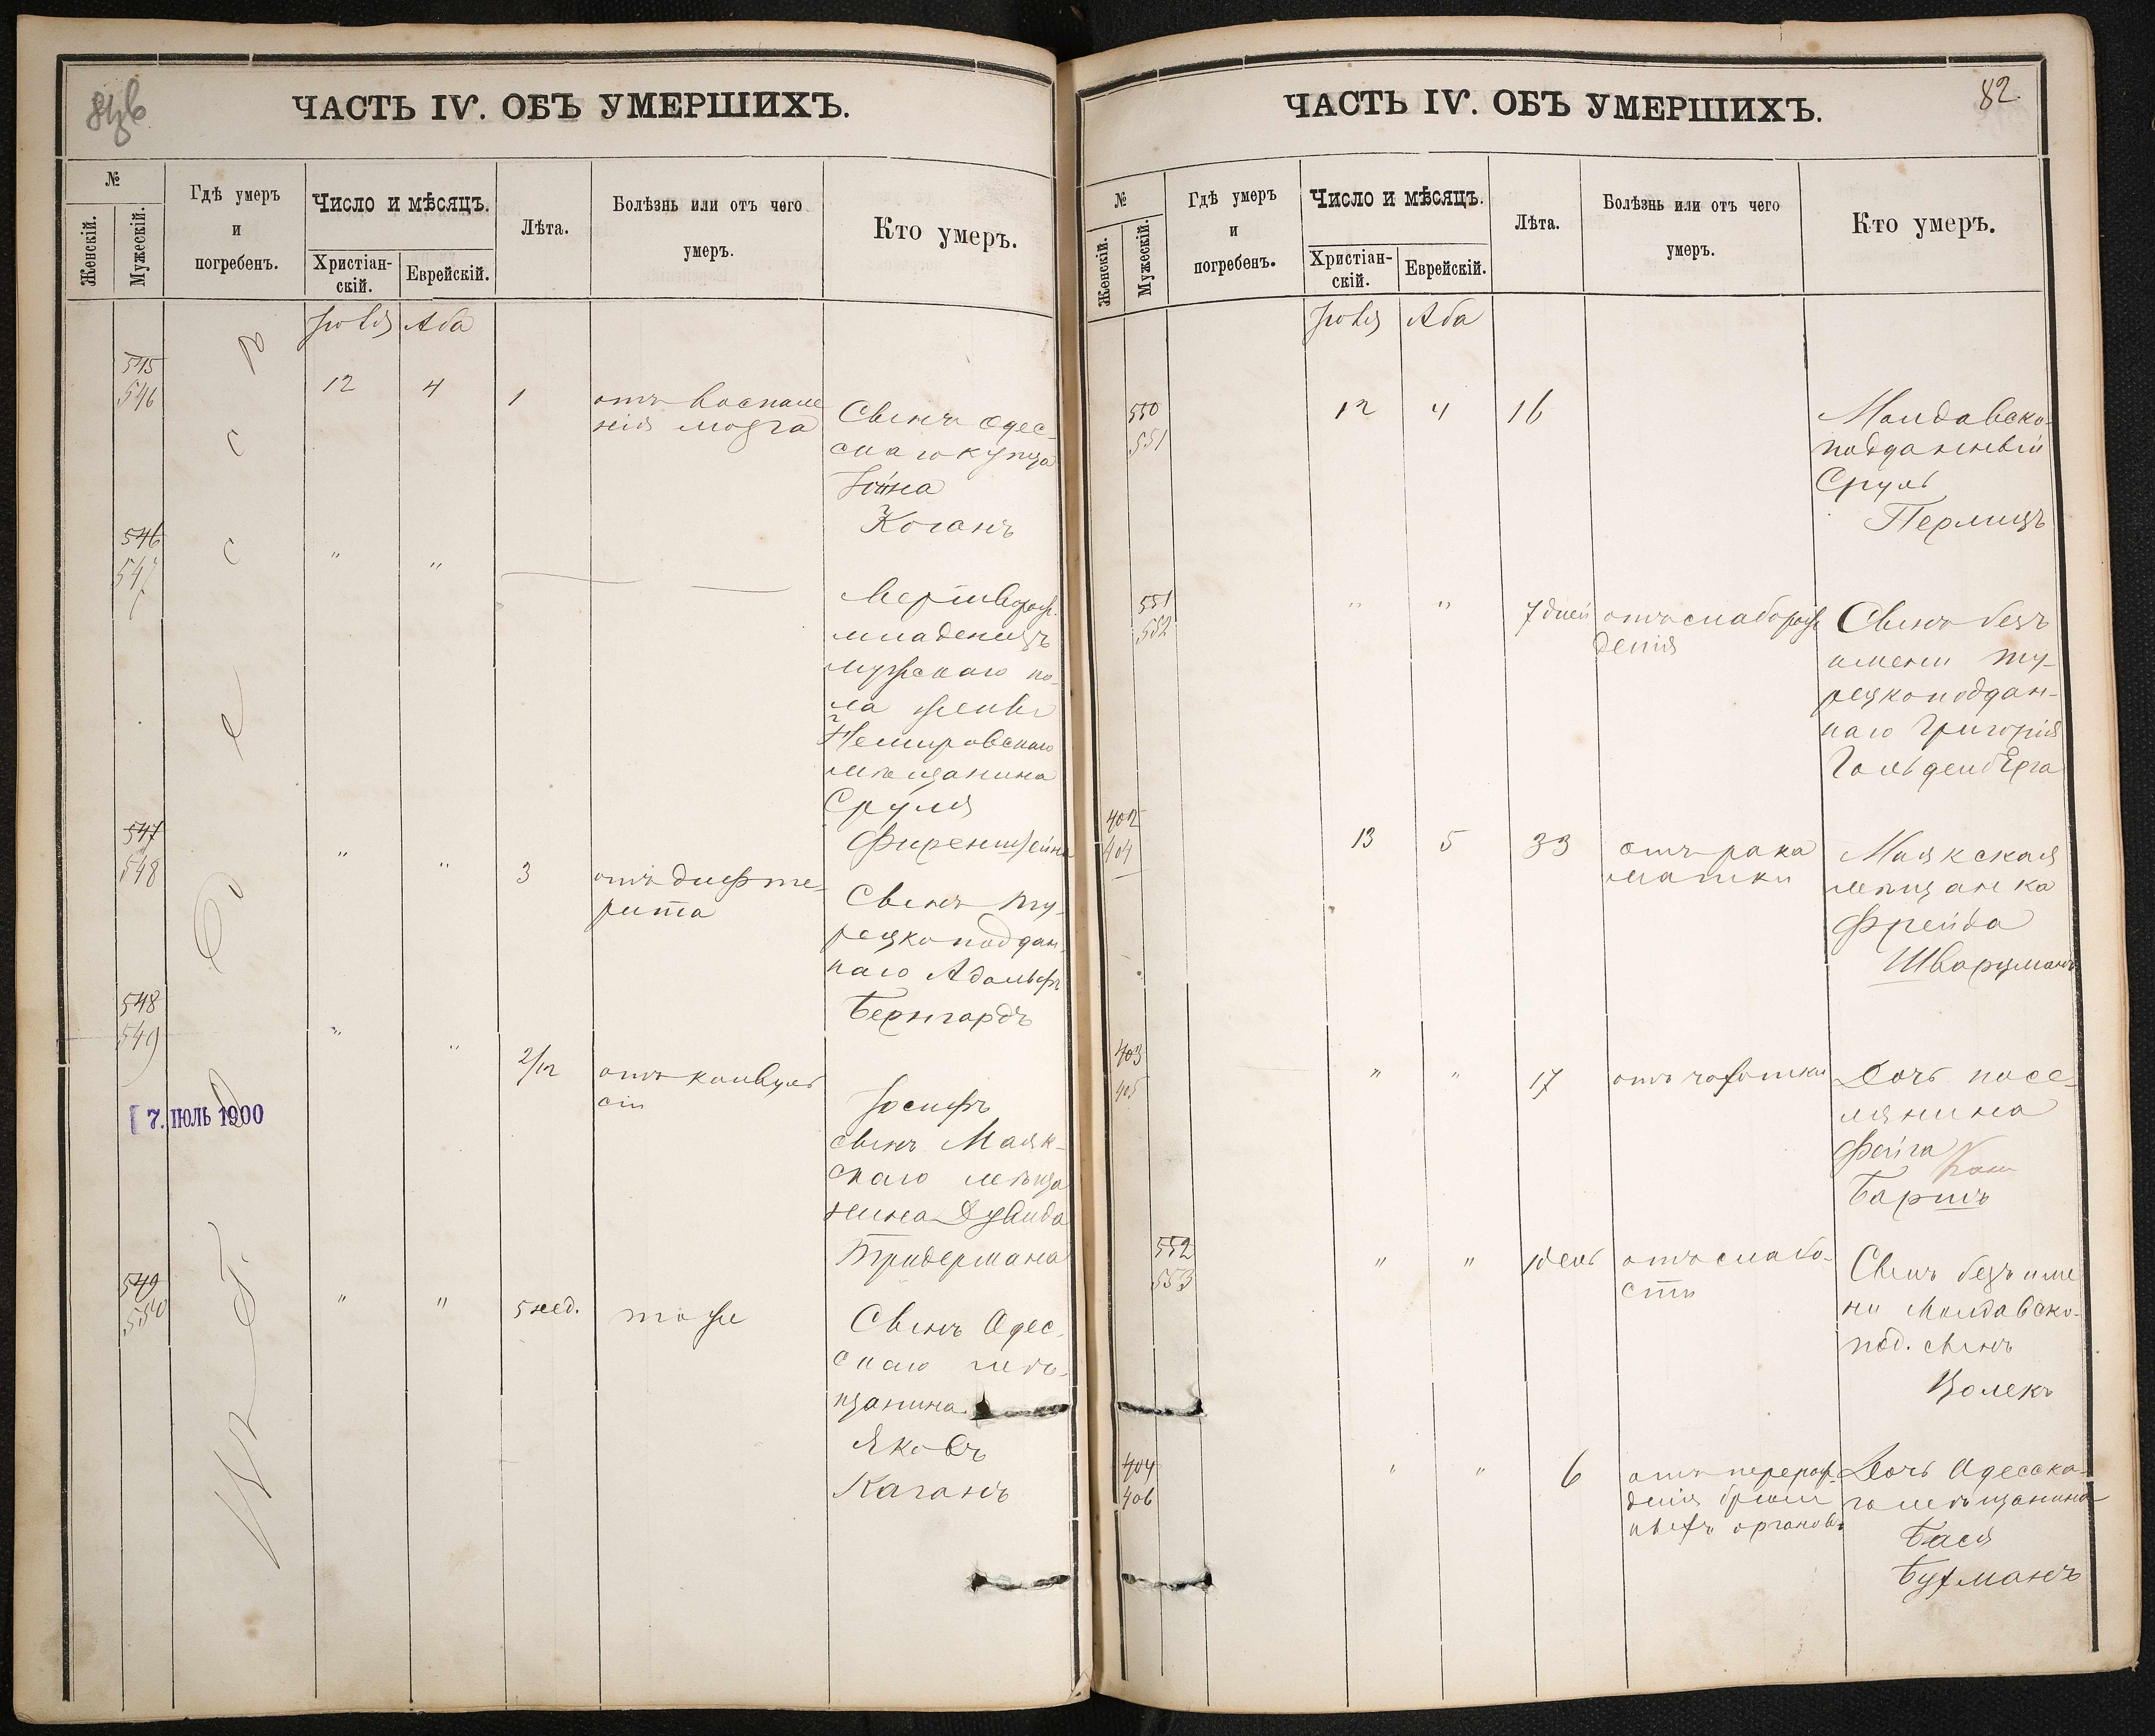 ЧАСТЬ IV. ОБЪ УМЕРШИХЪ.
№
Женскій.
Мужескій.
Гдѣ умеръ
и
погребенъ.
Число и мѣсяцъ.
Христіан-
скій.
Еврейскій.
Лѣта.
Болѣзнь или отъ чего
умеръ.
Кто умеръ.
Іюля Аба
545
546
12 4 1
отъ воспале
нія мозга
Сынъ Одес-
скаго купца
Іойна
Коганъ
546
547
" "
Мертворож.
младенецъ
мужскаго по-
ла жены
Немировскаго
мѣщанина
Сруля
Фиренштейна
547
548
" " 3
отъ дифте-
рита
Сынъ ту-
рецкоподдан
наго Адольфъ
Бернгардъ
548
549
" " 2/12
отъ конвуль
сіи
Іосифъ
сынъ Маяк-
скаго мѣща
нина Дувида
Тридермана
549
550
" " 5 нед. тоже
Сынъ Одес-
скаго мѣ-
щанина
Яковъ
Каганъ
7. ІЮЛЬ 1900
Одесса
82
ЧАСТЬ IV. ОБЪ УМЕРШИХЪ.
№
Женскій.
Мужескій.
Гдѣ умеръ
и
погребенъ.
Число и мѣсяцъ.
Христіан-
скій.
Еврейскій.
Лѣта.
Болѣзнь или отъ чего
умеръ.
Кто умеръ.
Іюля Аба
550
551
12 4 16
Молдавско-
подданный
Сруль
Перлицъ
551
552
" " 7 дней
отъ слаборож
денія
Сынъ безъ
имени ту-
рецкоподдан-
наго Григорія
Гольденберга
402
404
13 5 33
отъ рака
матки
Маякская
мѣщанка
Фрейда
Шварцманъ
403
405
" " 17 отъ чахотки
Дочь посе-
лянина
Фейга
Баршъ
552
553
" " 1 день
отъ слабо-
сти
Сынъ безъ име
ни Молдавско-
под. сынъ
Цолекъ
404
406
" " 6
отъ перерож-
денія брюш
ныхъ органовъ
Дочь Одесска-
го мѣщанина
Бася
Бухманъ